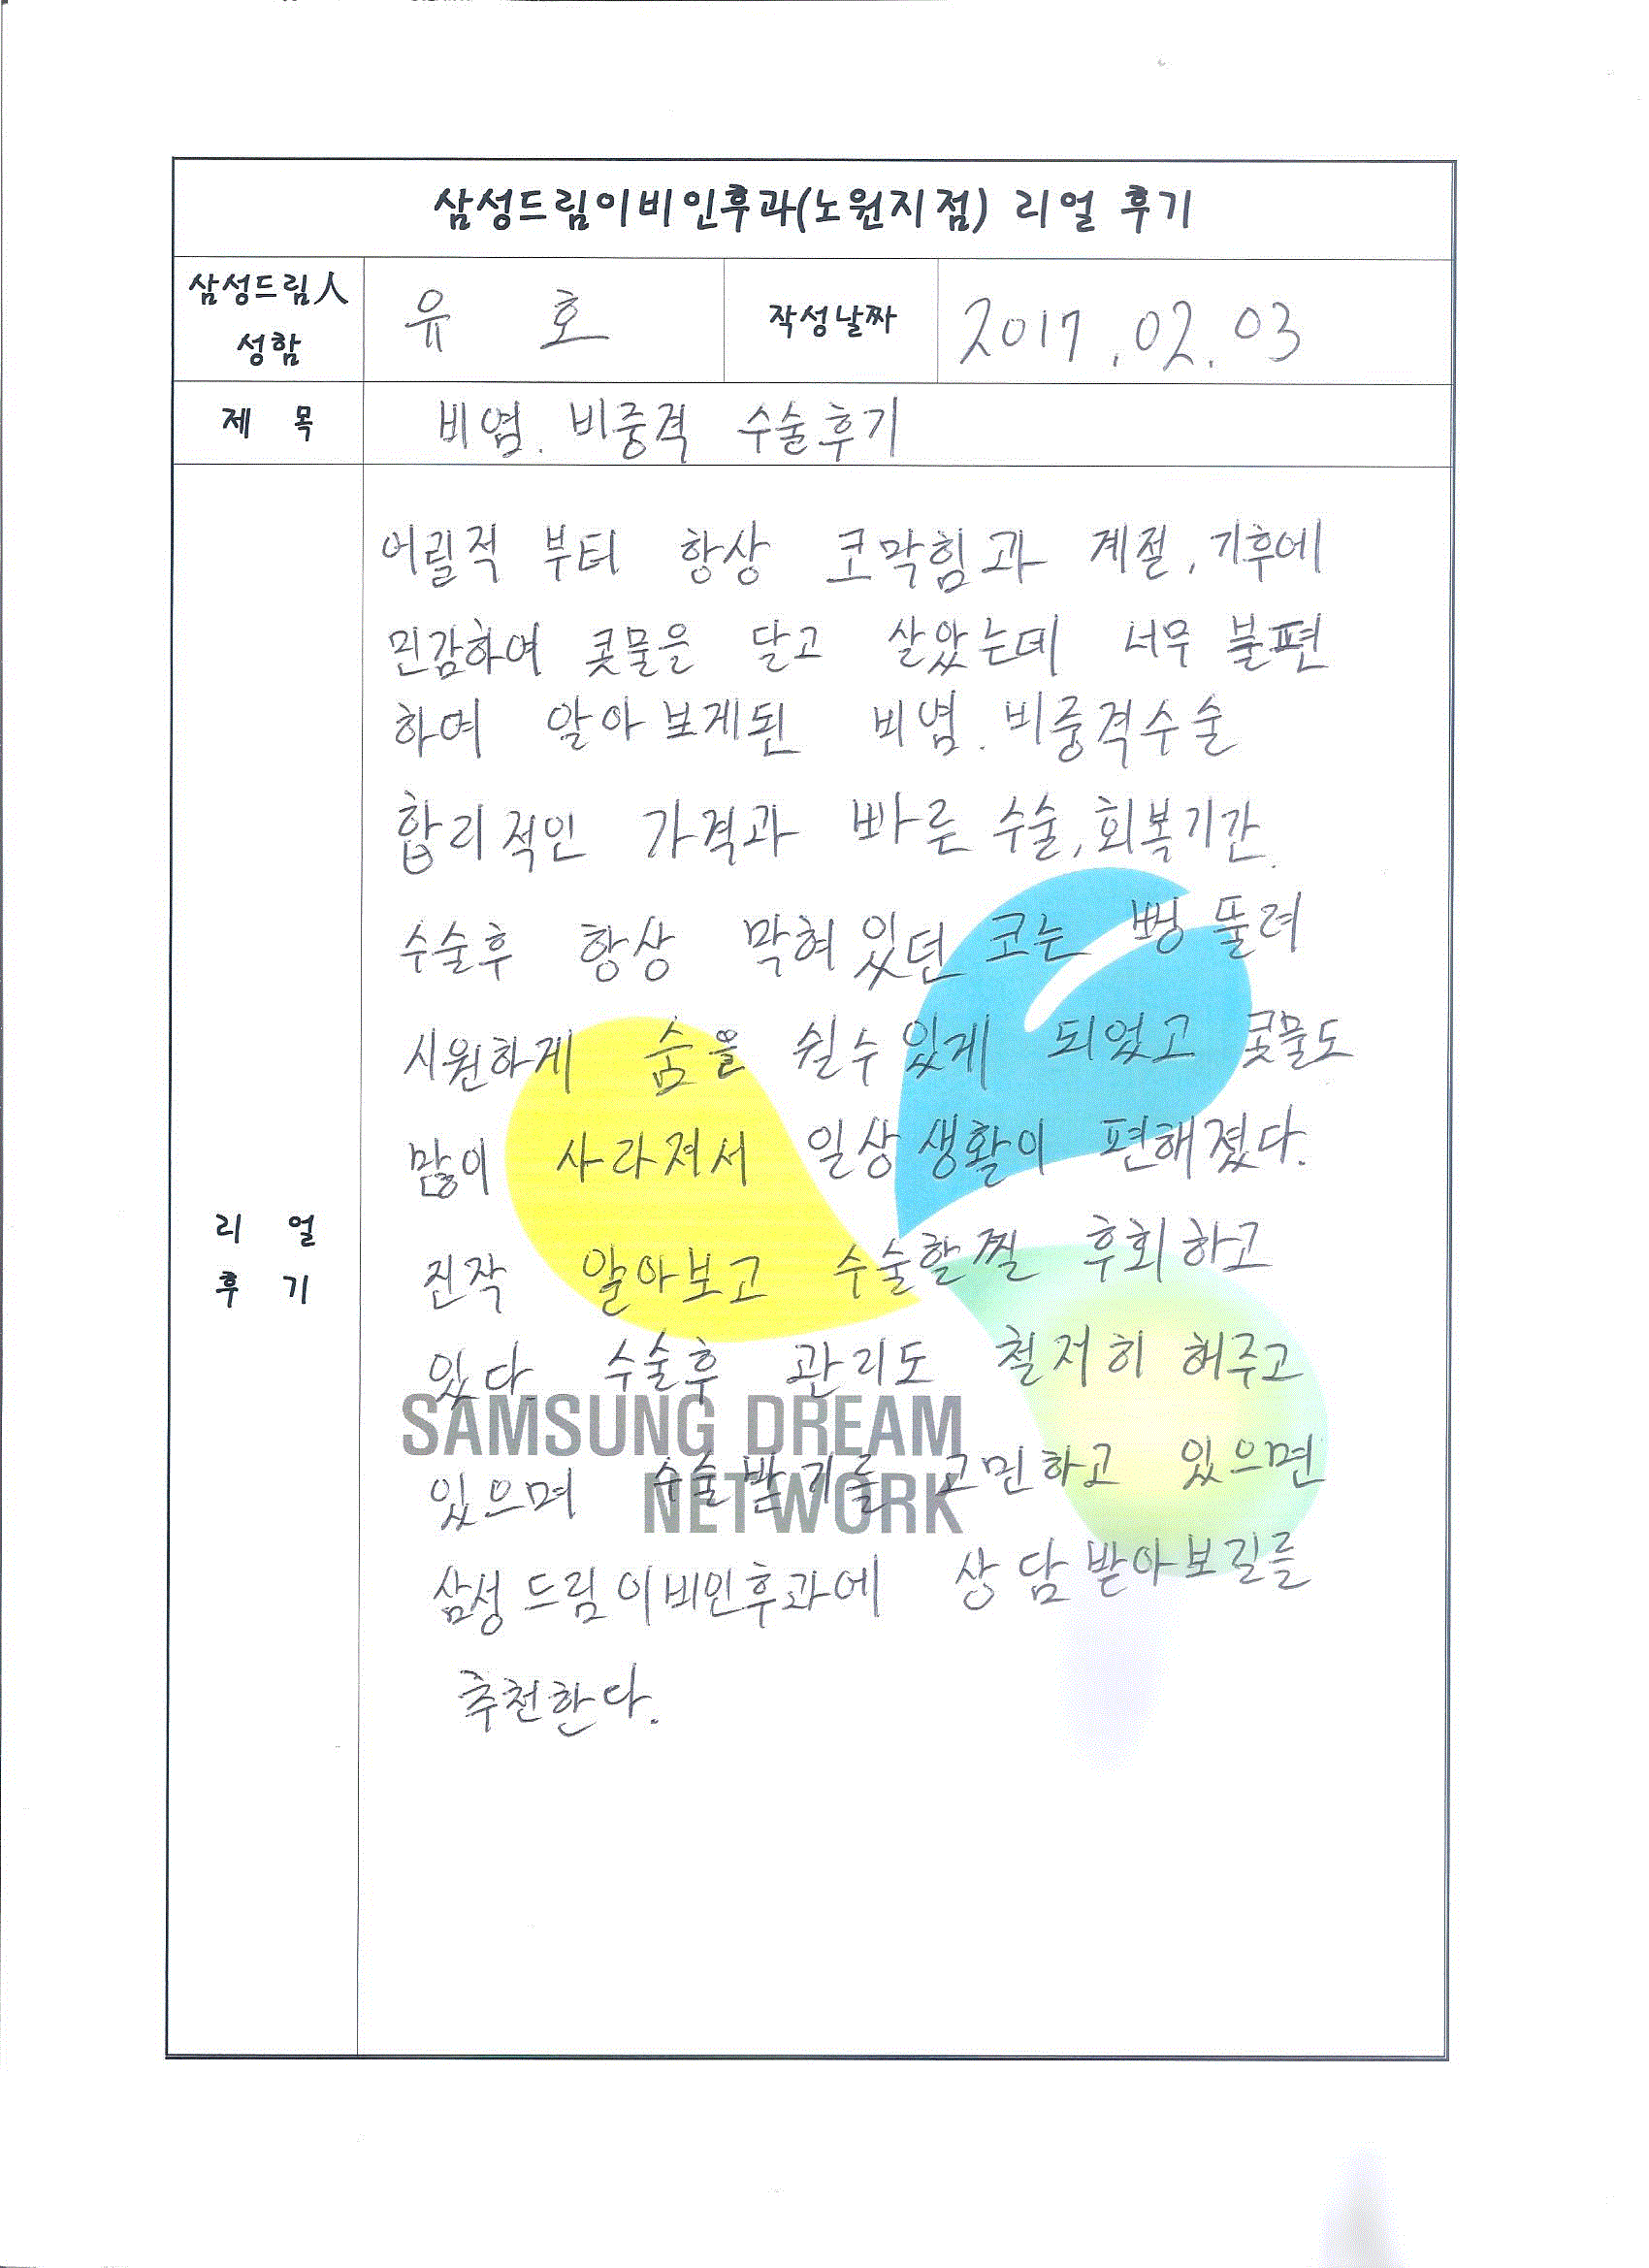 삼성드림이비인후과(노원지점) 리얼 후기
삼성드림人
성함
유 호
작성날짜
2017.02.03
제 목
비염. 비중격 수술후기
리 얼
후 기
어릴적 부터 항상 코막힘과 계절, 기후에
민감하여 콧물을 달고 살았는데 너무 불편
하여 알아보게된 비염. 비중격수술
합리적인 가격과 빠른 수술, 회복기간.
수술후 항상 막혀있던 코는 뻥 뚫려
시원하게 숨을 쉴수있게 되었고 콧물도
많이 사라져서 일상생활이 편해졌다.
진작 알아보고 수술할껄 후회하고
있다 수술후 관리도 철저히 해주고
있으며 수술받기를 고민하고 있으면
삼성드림이비인후과에 상담받아보길를
추천한다.
SAMSUNG DREAM
NETWORK